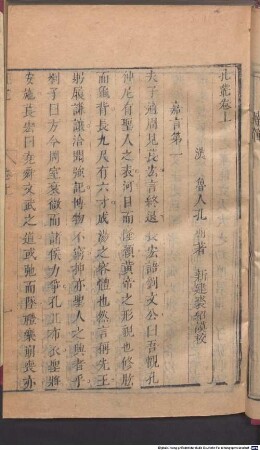 孔叢卷上
漢 魯人孔鮒著 新建裘紹謨校
嘉言第一
夫子適周見萇弘言終退萇弘語劉文公曰吾觀孔
仲尼有聖人之表河目而隆顙黃帝之形貌也修肱
而龜背長九尺有六寸成湯之容體也然言稱先王
躬履謙讓洽聞強記博物不窮抑亦聖人之興者乎
劉子曰方今周室衰微而諸侯力爭孔丘布衣聖將
安施萇弘曰堯舜文武之道或弛而墜禮樂崩喪亦